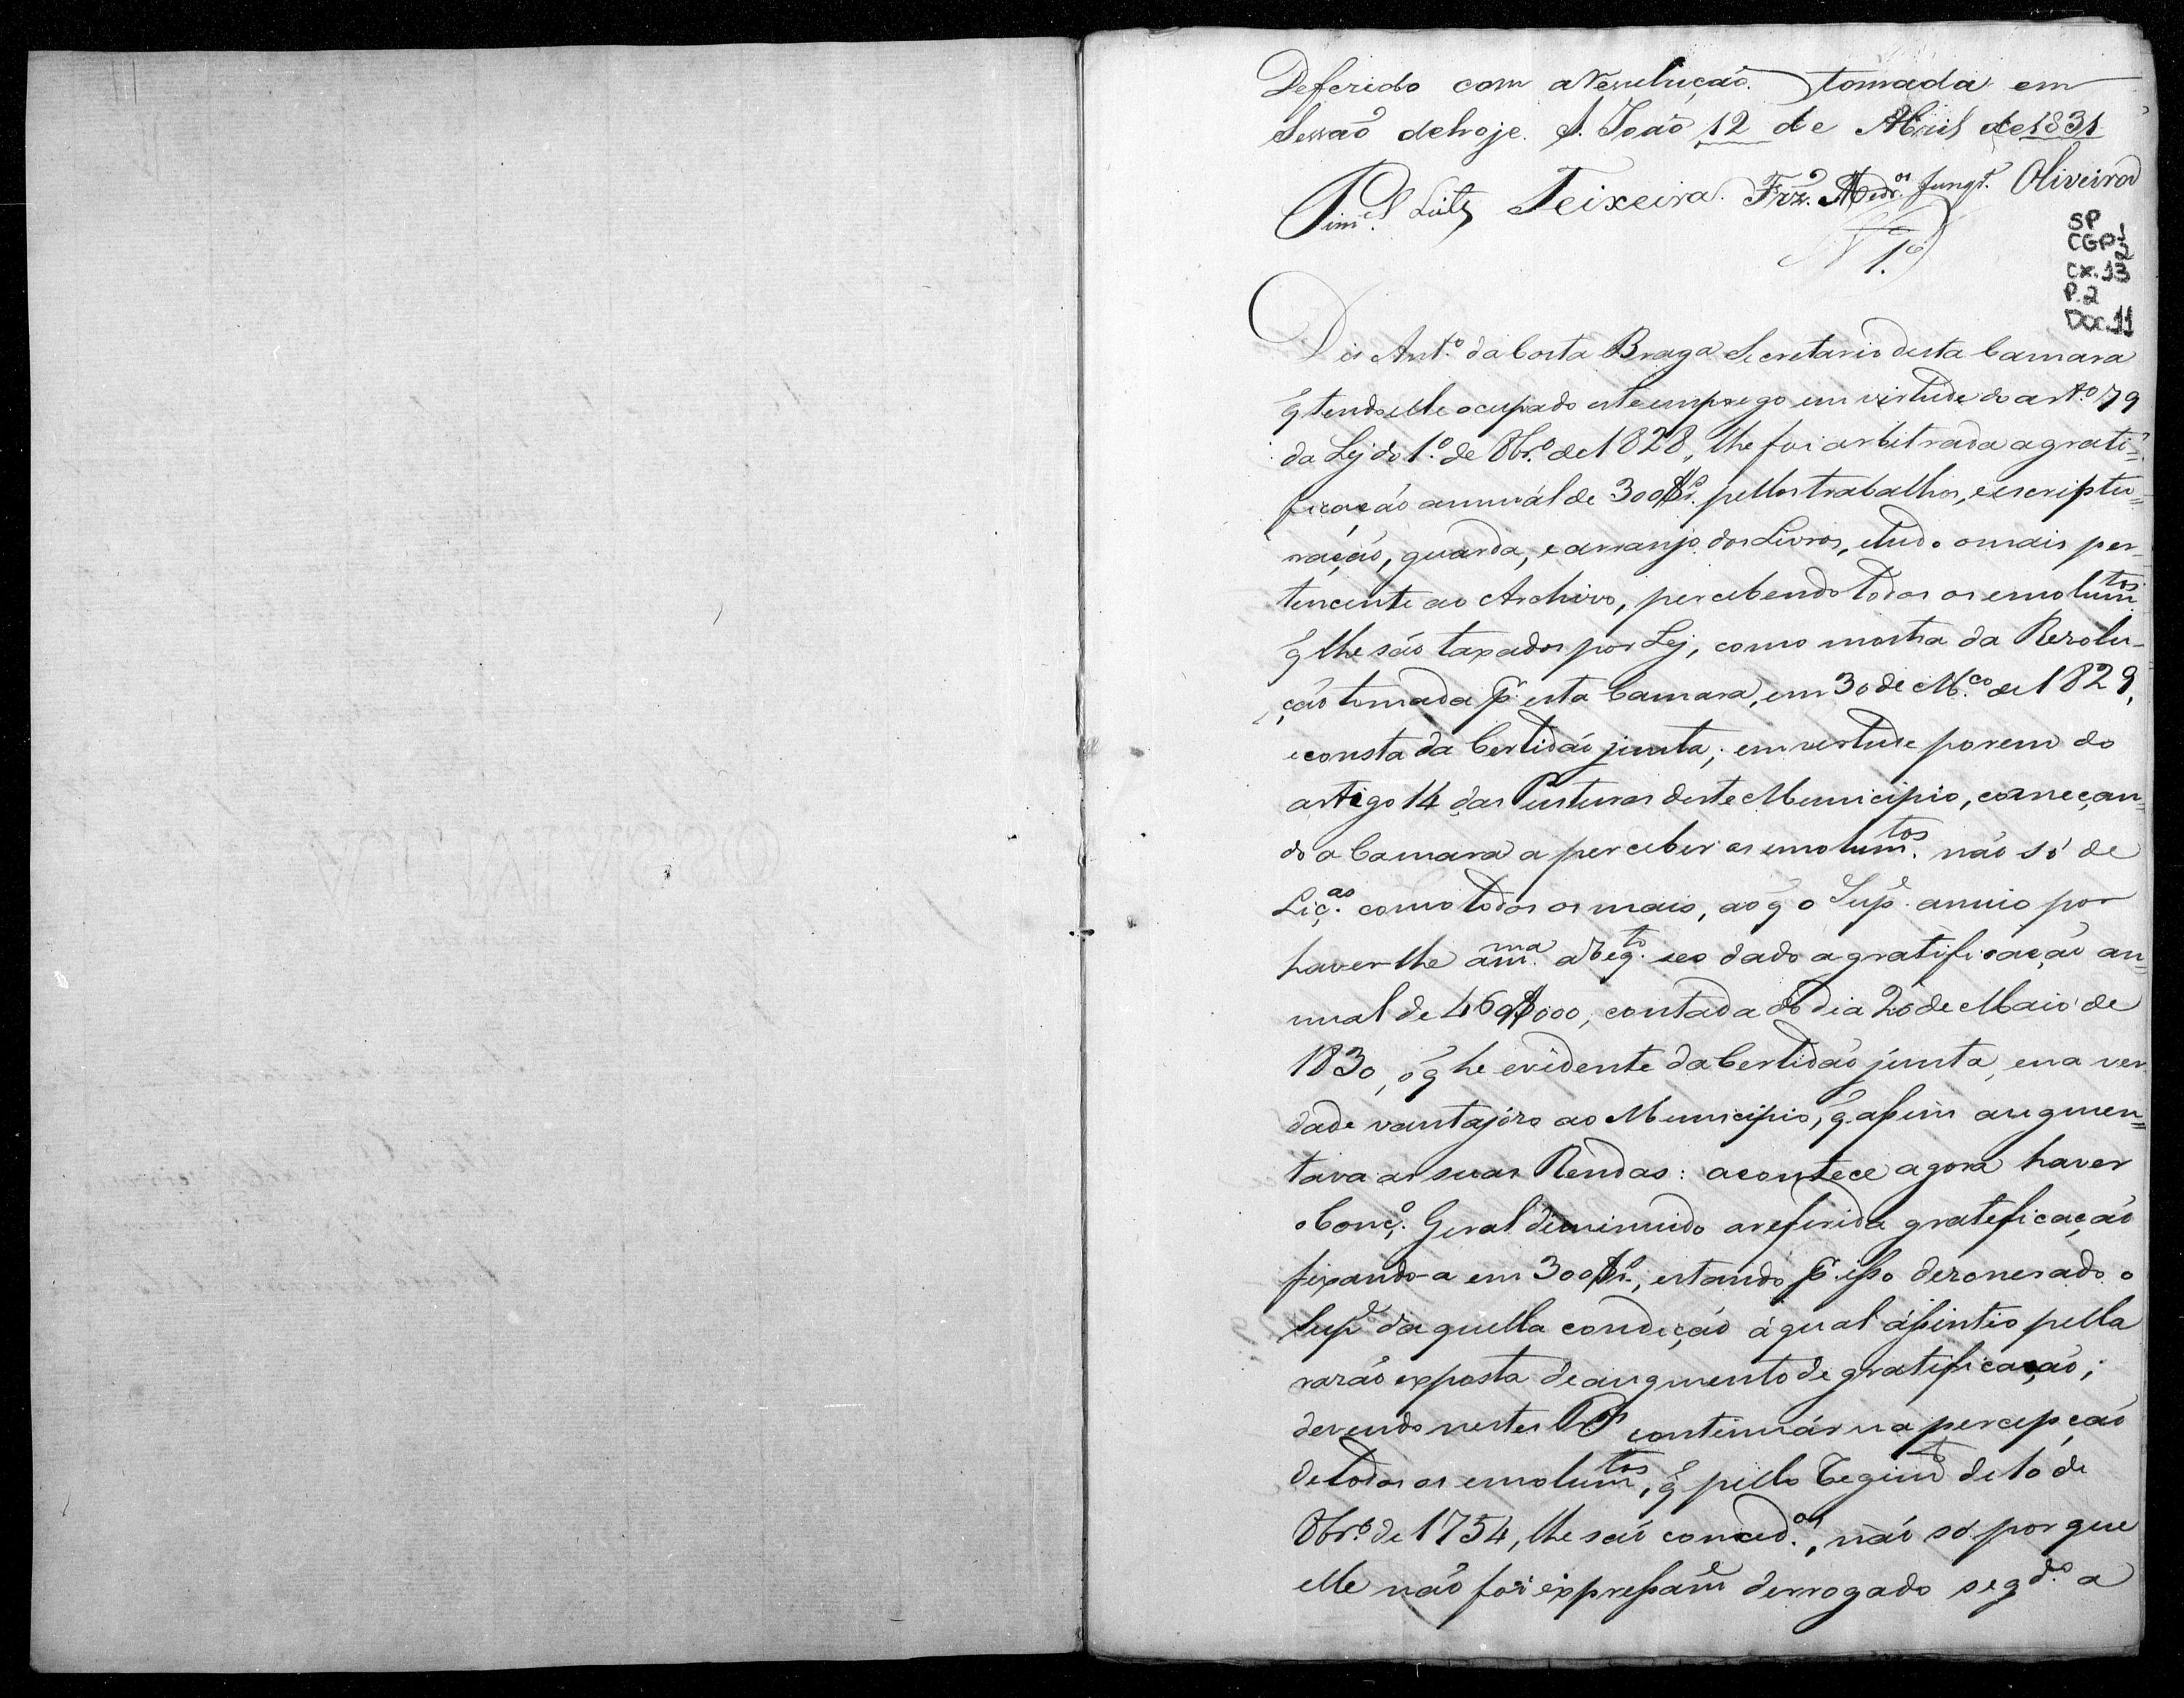 Deferido com a Rezulução tomada em
Sessaõ dehoje. S. Joaõ 12 de Abril de 1831
Pim.el Luiz Teixeira. Frz. Medr.os Jung.r Oliveira
N 1.º
SP
CGP-1
2
CX.13
P.2
DOC.11
Dis Ant.º da Costa Braga Secretario desta Camara
q̃ tendo elle ocupado este emprego em virtude do art.º 79
da Lej do 1.º de 8br.º de 1828, lhe foi arbitrada a grati=
ficação annuál de 300$r.s pellos trabalhos, e escriptu=
ração, guarda, e arranjo dos Livros, e tudo o mais per-
tencente ao Archivo, percebendo todos os emolum.tos
q̃ lhe são taxados por Lej, como mostra da Rezolu-
ção tomada p.r esta Camara, em 30 de M.ço de 1829,
e consta da Certidão junta; em vertude porem do
artigo 14 das Pusturas deste Municipio, começan=
do a Camara a perceber os emolum.tos não só de
Liç.as como todos os mais, ao q̃ o Sup.e anuio por
haver lhe a m.ma a req.to seo dado a gratificação an=
nual de 460$000, contada do dia 20 de Maio de
1830, o q̃ he evidente da Certidão junta, e na ver
dade vantajozo ao Municipio, q̃ aßim augmen=
tava as suas Rendas: acontece agora haver
o Conç.º Geral diminuido a referida grateficação
fixando-a em 300$r.s, estando p.r ißo dezonerado o
Sup.e daquella condição á qual aßintio pella
razão exposta de augmento de gratificação;
devendo nestes t.os continuár na percepção
de todos os emolum.tos, q̃ pello Regim.to de 10 de
8br.º de 1754, lhe são conced.os, não só porque
elle não foi expreßam.e derrogado seg.do a